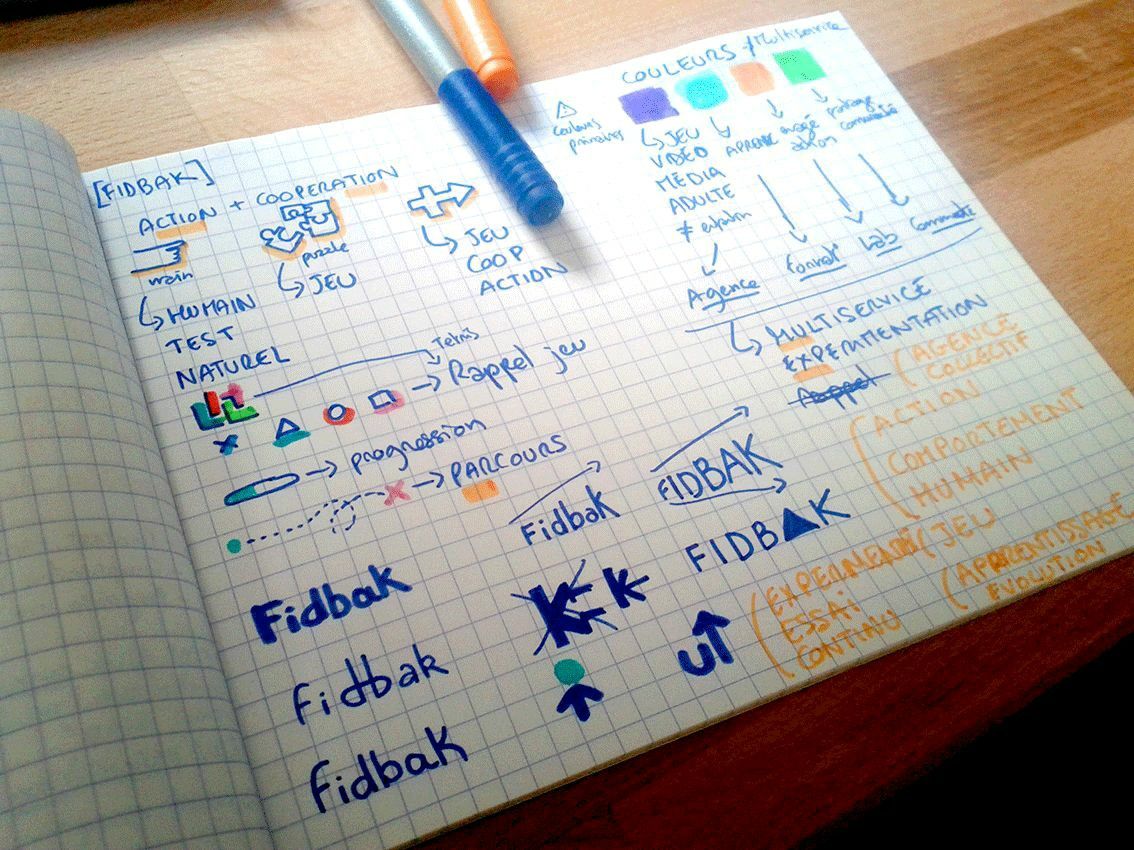 [FIDBAK]
ACTION + COOPERATION
main
puzzle
HUMAIN
TEST
NATUREL
JEU
JEU
COOP
ACTION
Tetris
Rappel jeu
progression
PARCOURS
Fidbak
FIDBAK
Fidbak
FIDBAK
K
fidbak
fidbak
COULEURS + Multiservice
Couleurs
primaires
JEU
VIDÉO
MÉDIA
ADULTE
≠
APRENDRE
partage
communauté
Agence
Lab
Communauté
MULTISERVICE
EXPERIMENTATION
AGENCE
COLLECTIF
ACTION
COMPORTEMENT
HUMAIN
JEU
ESSAI
CONTINU
APPRENTISSAGE
EVOLUTION